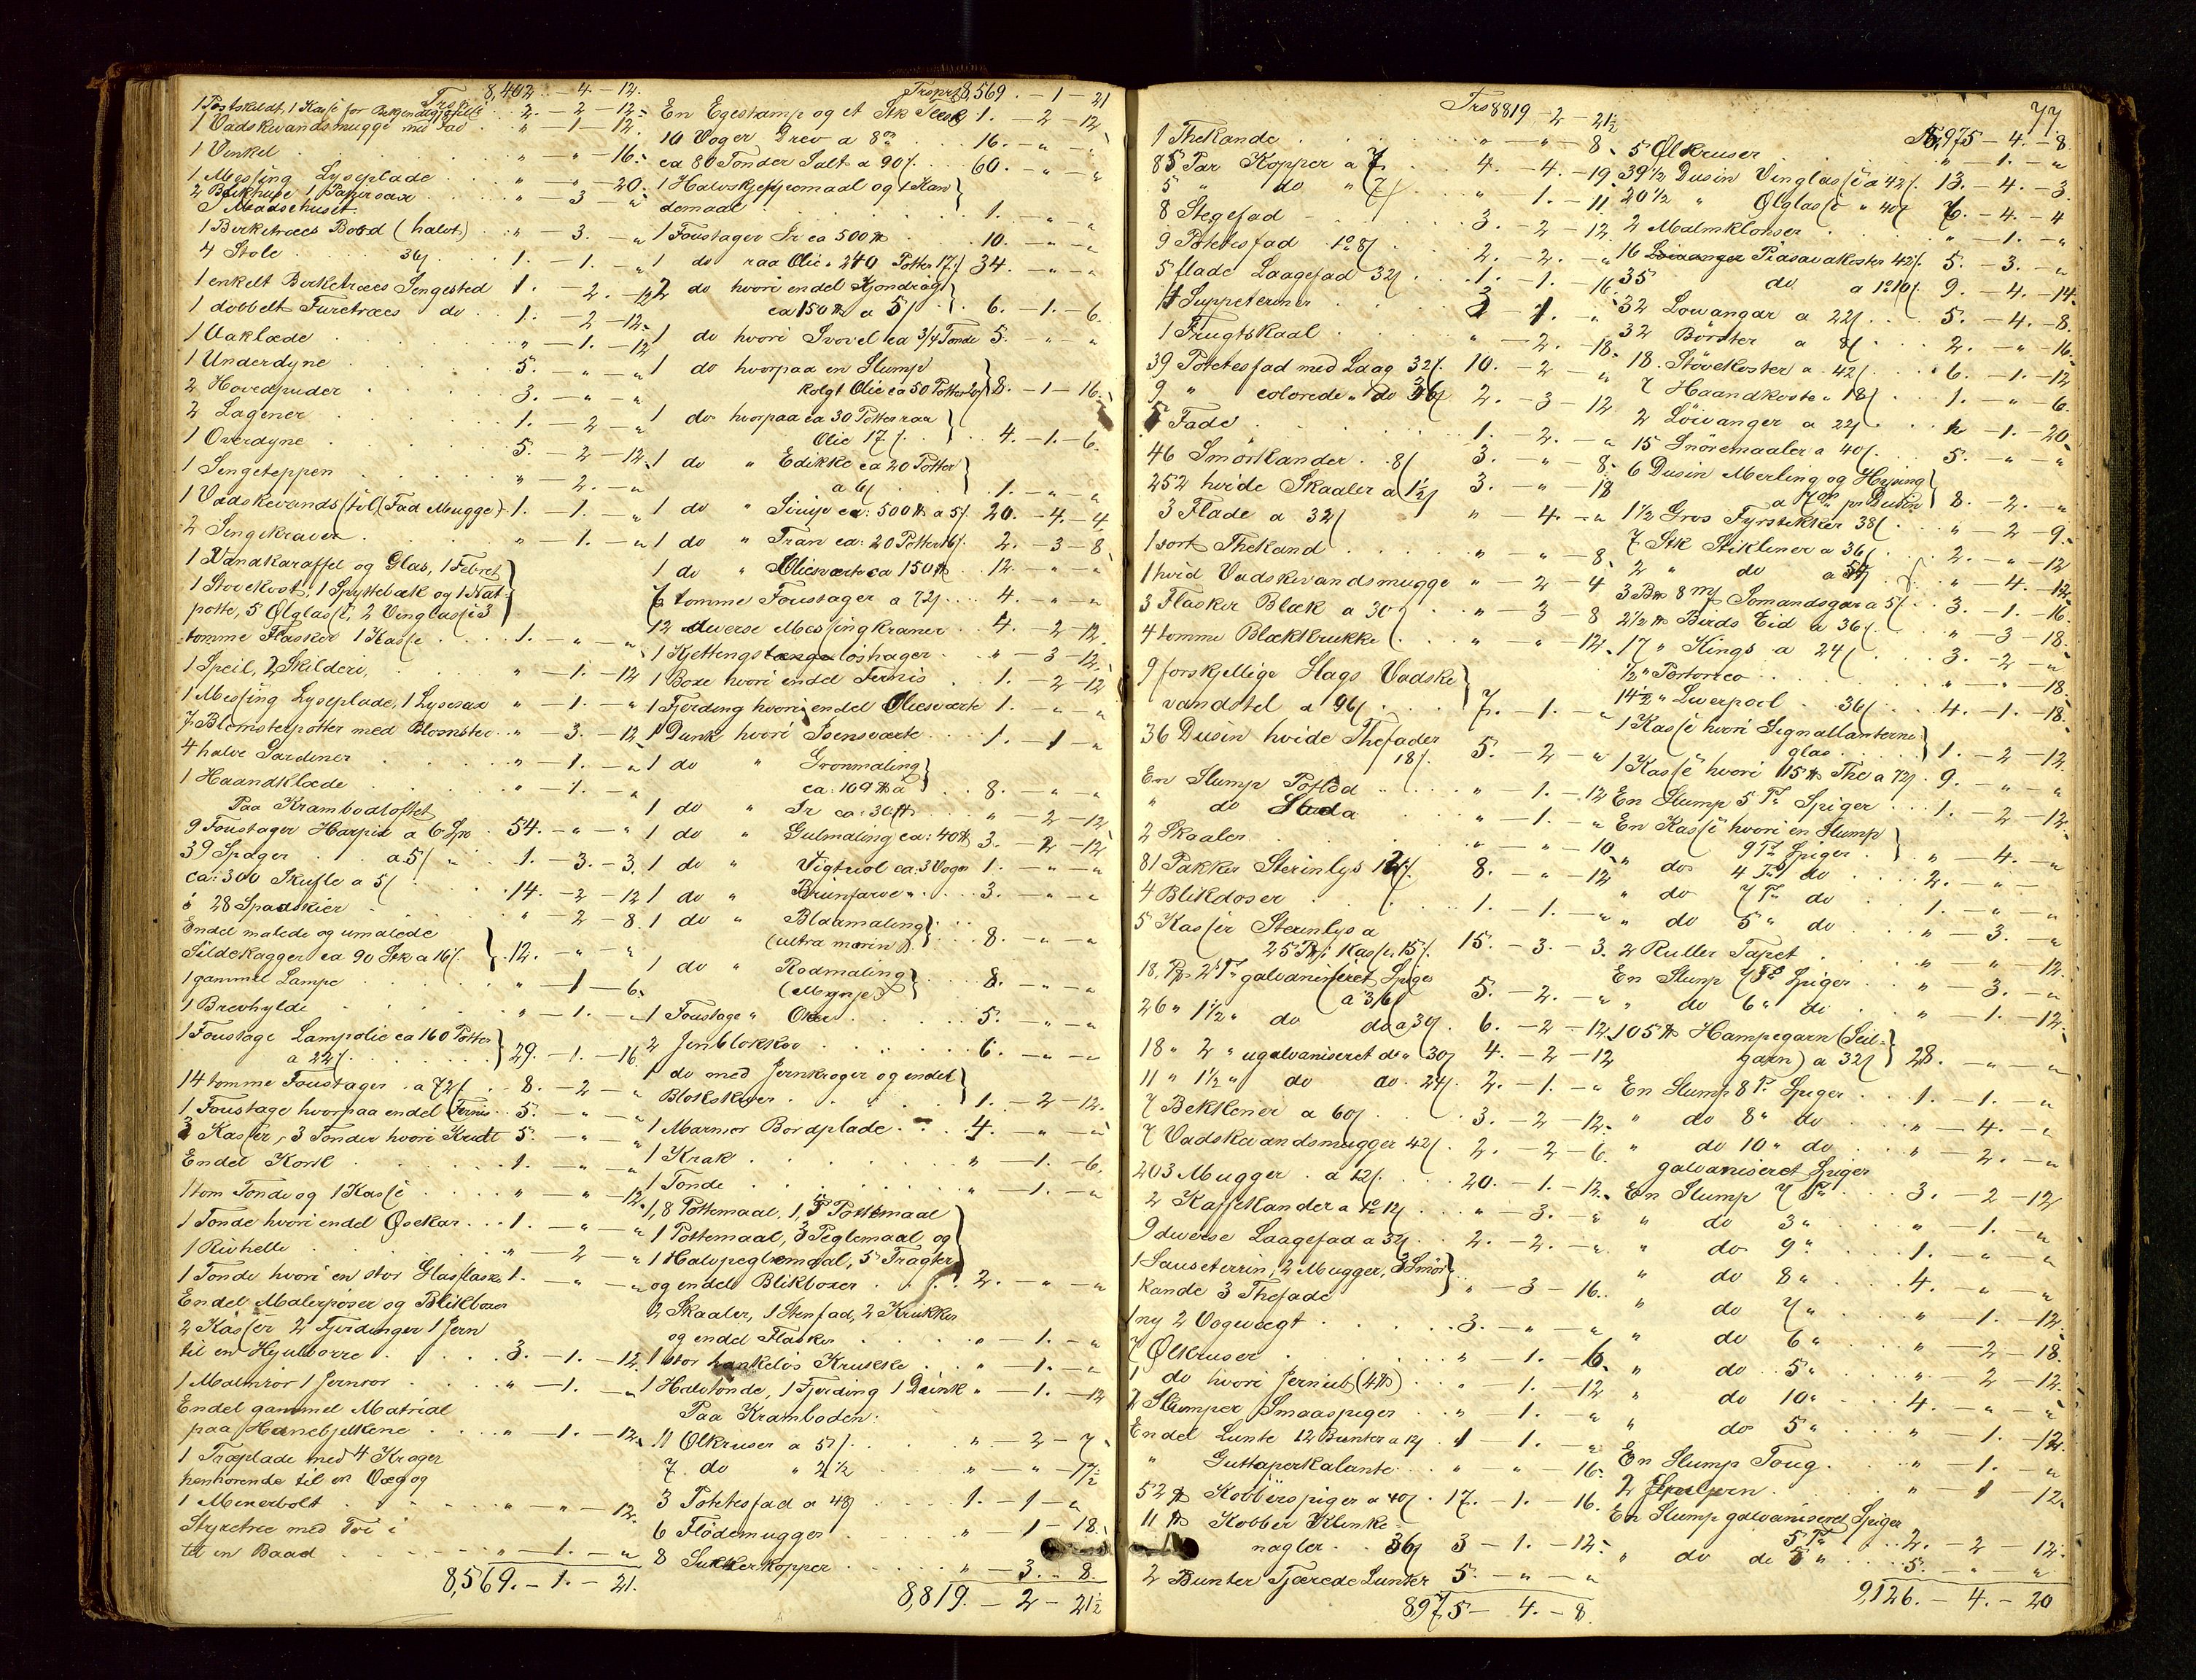 8,402 - 4 - 12.
1 Postskildt, 1 Kasse for 2. - 2 - 12
1 Vadskevandsmugge med Fad " - 1 - 12.
1 Vinkel " - " - 16.
1 Messing Lyseplade " - " - 20.
2 Blekhuse 1 Papirsax " - 3 - "
1 Birketræes Bord (halvt) " - 3. - "
4 Stole 36ſ 1. - 1. - "
1 enkelt Birketræes Sengested 1. - 2. - 12
1 dobbelt Furetræes do 1. - 2 - 12.
1 Uaklæde " - 1. - 12
1 Underdyne 5. - " - "
2 Hovedpuder 3. - " - "
2 Lagener 1. - 2 - "
1 Overdyne 5. - 2 - 12.
1 Sengeteppen " - 2. - "
1 Vadskevandsstel (Fad Mugge) 1. - 1. - "
2 Sengekraver " - 1. - "
1 Vandkaraffel og Glas, 1 Febret
1 Støvekost, 1 Spyttebæk og 1 Nat
potte, 5 Ølglasse, 2 Vinglasse 3
tomme Flasker 1 Kasse 1. - " - "
1 Speil, 2 Skilderi, " - 1. - 12
1 Messing Lyseplade, 1 Lysesax " - 1. - "
7 Blomsterpotter med Blomster " - 3. - 12
4 halve Gardiner " - 1. - "
1 Haandklæde " - 1. - "
Paa Kramboeloftet
9 Foustager Harpix a 6 Sp 54. - " - "
39 Spager a 5ſ 1. - 3. - 3.
ca: 300 Skufle a 5ſ 14. - 2 - 12
28 Spadskier " - 2 - 8.
Endel malede og umalede
Sildekagger ca 90 Stk a 16ſ. 12. - " - "
1 gammel Lampe " - 1 - 6.
1 Brevhylde " - 1. - "
1 Foustage Lampolie ca 160 Potter
a 22ſ. 29. - 1. - 16
14 tomme Foustager a 72ſ 8. - 2 - "
1 Foustage hvorpaa endel Fernis 5. - " - "
3 Kasser, 3 Tonder hvori Kridt 5. - " - "
Endel Kork 1. - " - "
1 tom Tonde og 1 Kasse " - " - 12.
1 Tonde hvori endel Øsekar 1. - " - "
1 Rivhelle " - 2 - "
1 Tonde hvori en stor Glasflaske 1. - " - "
Endel Malerposer og Blikboxer
2 Kasser 2 Fjerdinger 1 Jern
til en Hjulborre 3. - 1. - 12.
1 Malmrør 1 Jernrør " - 1. - "
Endel gammel Matrial
paa Hanebjelkene " - 1. - 12.
1 Træplade med 4 Kroger
henhorende til en Væg og
1 " - " - 12.
Styretræ med Toi i
til en Baad " - 1. - "
8,569. - 1. - 21.
Trsprt 8,569. - 1 - 21
En Egestamp og et Stk 1. - 2 - 12
10 Voger Drev a 8 16. - " - "
ca 80 Tonder Salt a 90ſ. 60. - " - "
1 Halvskjeppemaal og 1 Kan
demaal 1. - " - "
1 Foustager Ir ca 500 ℔ 10. - " - "
1 do raa Olie a 240 Potter 17ſ 34. - " - "
2 do hvori endel
ca 150 ℔ a 5ſ 6. - 1. - 6.
1 do hvori Svovel ca 3/4 Tonde 5. - " - "
1 do hvorpaa en Slump
kolgt Olie ca 50 Potter 20ſ 8. - 1 - 16.
1 do hvorpaa ca 30 Potter raa
Olie 17ſ. 4. - 1. - 6.
1 do " Edikke ca 20 Potter
a 6ſ 1. - " - "
1 do " Sirup ca: 500 ℔ a 5ſ 20. - 4. - 4
1 do " Tran ca: 20 Potter 16ſ. 2. - 3 - 8.
1 do " Oliesværte ca 150 ℔ 12. - " - "
6 tomme Foustager a 72ſ 4. - " - "
12 diverse Messingkraner 4. - 2 - 12.
1 Kjettings " - 3 - 12.
1 Boxe hvori endel Fernis 1. - 2 - 12
1 Fjerding hvori endel Oliesværte 1. - " - "
1 Dunk hvori Isensværte 1. - 1 - "
1 do " Grønmaling
ca: 109 ℔ a 8. - " - "
1 do " Ir ca: 30 ℔ " - 2 - 12
1 do " Gulmaling ca: 40 ℔ 3. - 2 - 12
1 do " Vigtriol ca. 3 Voger 1. - " - "
1 do " Brunfarve " 3. - " - "
1 do " Blaamaling
(ultra marin) 8. - " - "
1 do " Rødmaling
(Mynje) 8. - " - "
1 Foustage " Oker 5. - " - "
2 Jernblokker 6. - " - "
1 do med Jernkroger og endel
Blokskiver 1. - 2 - 12.
1 Marmor Bordplade 4. - " - "
1 Krak " - 1. - 6.
1 Tonde " - 1. - "
1, 8 Pottemaal. 1, 5 Pottemaal
1 Pottemaal, 3 Peglemaal og
1 Halvpeglemaal, 5 Tragter
og endel Blikboxer 2. - " - "
2 Skaaler, 1 Stenfad, 2 Krukker
og endel Flasker " - 1. - "
1 stor hankeløs Krukke " - 1. - "
1 Halvtonde, 1 Fjerding 1 Dunk " - 1. - 12
Paa Kramboden:
11 Olkruser a 5ſ. " - 2 - 7
7 do " 2 1/2 " - " - 17 1/2
3 Potetesfad a 48ſ 1. - 1 - "
6 Flødemugger " - 1 - 18.
8 Sukkerkopper " - 3. - 8.
8,819. - 2 - 21 1/2
Trs 8819 - 2 - 21 1/2
1 Thekande " - " - 8.
85 Par Kopper a 7 4. - 4. - 19
5 " do " 7ſ " - 1. - 11.
8 Stegefad 3. - 2 - 12
9 Potetesfad 1° 8ſ 2. - 2. - "
5 flade Laagefad 32ſ 1. - 1. - 16.
4 Suppeteriner 3 - 1. - "
1 Frugtskaal " - 2. - 18
39 Potetesfad med Laag 32ſ. 10. - 2 - "
9 " colorede " do 36ſ 2. - 3 - 12
5 Fade 1. - 2. - "
46 Smørkander 8ſ 3. - " - 8.
252 hvide Skaaler a 1 1/2ſ 3. - " - 18
3 Flade a 32ſ " - 4. - "
1 sort Thekand " - " - 8.
1 hvid Vadskevandsmugge " - 2 - 4
3 Flasker Blæk a 30ſ " - 3 - 8
4 tomme Blækkrukke " - " - 12.
9 forskjellige Slags Vadske
vandstel a 96ſ 7. - 1. - "
36 Dusin hvide Thefader
18ſ. 5. - 2 - "
En Slump Potlod " - 1. - 12
" do Soda " - 1. - "
2 Skaaler " - " - 10.
81 Pakker Sterinlys 12ſ. 8. - " - 12
4 Blikdoser 1. - 1. - "
5 Kasser Sterinlys a
25 Pk i Kasse 15ſ. 15. - 3. - 3.
18. Pk 2" galvaniseret Spiger
a 36ſ 5. - 2. - "
26 " 1 1/2 " do do a 30ſ. 6. - 2 - 12
18 " 2 " ugalvaniseret do " 30ſ 4. - 2 - 12
11 " 1 1/2 " do do. 24ſ. 2. - 1. - "
7 Beklener a 60ſ 3. - 2 - 12.
7 Vadskevandsmugger 42ſ. 2. - 2 - 6.
203 Mugger a 12ſ. 20. - 1. - 12.
2 Kaffekander a 1° 12ſ " - 3. - "
9 diverse Laagefad a 32ſ 2. - 2. - "
1 Sauseterrin, 2 Mugger, 3 Smør
kande 3 Thefade " - 3 - 16.
1 ny 2 Vogvægt 3. - " - "
7 Ølkruser " - 1. - 6.
1 do hvori Jernub (4 ℔) " - 1. - 12
2 Slumper Smaaspiger " - 1. - "
Endel Lunte 12 Bunter a 12ſ 1 - 1. - "
" Guttaperkalunte " - " - 16.
52 ℔ Kobberspiger a 40ſ. 17. - 1. - 16.
11 ℔ Kobber Klinke
nagler 36ſ 3 - 1. - 12.
2 Bunter Tjærede Lunter 5. - " - "
8975 - 4. - 8.
77
8,975 - 4. - 8.
5 Ølkruser " - 1. - "
39 1/2 Dusin Vinglasse a 42ſ. 13. - 4. - 3.
20 1/2 " Ølglasse " 40ſ 7. - 4. - 4
2 Malmklokker " - 1. - "
16 Piasavakoster 42ſ. 5. - 3. - "
35 do a 1° 10ſ 9. - 4. - 14.
32 Lowangar a 22ſ 5. - 4. - 8.
32 Börster a 8ſ 2. - " - 16.
18. Stövekoster a 42ſ 6. - 1. - 12
7 Haandkoste a 18ſ 1. - " - 6.
2 Löivanger a 22ſ " - 1. - 20.
15 Snöremaaler a 40ſ 5. - " - "
6 Dusin Merling og Hysing
a 7 pr Dusin 8. - 2. - "
1 1/2 Gros Fyrstikker 38ſ " - 2 - 9.
7 Stk Stikliner a 36ſ 2. - " - 12
2 " do a 54ſ " - 4. - 12
3 B℔ 8 m℔ Somandsgar a 5ſ 3. - 1. - 16.
2 1/2 ℔ Birds Eid a 36ſ " - 3 - 18.
17 " Kings a 24ſ 3. - 2 - "
1/2 " Portorico " - " - 18.
14 1/2 " Liverpool 36ſ 4. - 1. - 18.
1 Kasse hvori Signallanterne
glas 1. - 2 - 12.
1 Kasse hvori 15 ℔ The a 72ſ 9. - " - "
En Slump 5 T" Spiger 1. - 2 - 12.
En Kasse hvori en Slump
9 T" Spiger " - 4. - "
" do 4 T" do 2. - " - "
" do 7 T" do 1. - " - "
" do 5 " do " - 3. - "
2 Ruller Tapet " - " - 12.
En Slump 7 T" Spiger " - 3. - "
" do 6 " do " - 1. - 12.
105 ℔ Hampegarn (Seil-
garn) a 32ſ 28. - " - "
En Slump 8 T" Spiger 1. - 1. - "
" do 8 " do " - 4. - "
" do 10 " do " - 2. - "
galvaniseret Spiger
En Slump 7 T" 3. - 2 - 12
" do 3 " " - 1. - "
" do 9 " 1. - " - "
" do 8 " 4. - " - "
" do 7 " " - 1. - 12.
" do 6 " " - 2 - 18.
" do 5 " " - 2 - 12.
" do 10 " 4. - " - "
" do 5 " " - 1. - 12.
En Slump Toug " - 1. - "
2 " - 1 - 12.
En Slump galvaniseret Spiger
5 T" 2. - 2 - 12.
" do do 5 " 5. - " - "
9,126. - 4. - 20